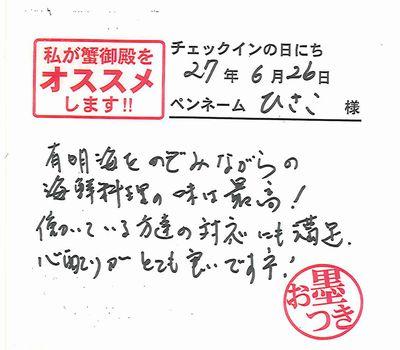 私が蟹御殿を
オススメ
します!!
チェックインの日にち
27年6月26日
ペンネーム ひさこ 様
有明海をのぞみながらの
海鮮料理の味は最高!
働いている方達の対応にも満足.
心配りがとても良いですネ!
お墨つき